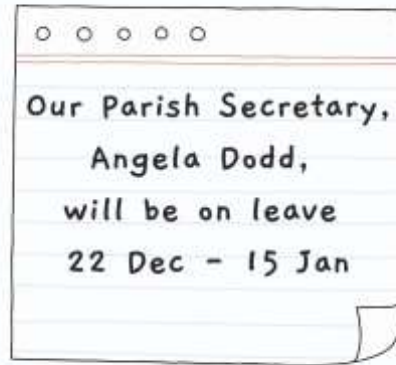 Our Parish Secretary,
Angela Dodd,
will be on leave
22 Dec - 15 Jan